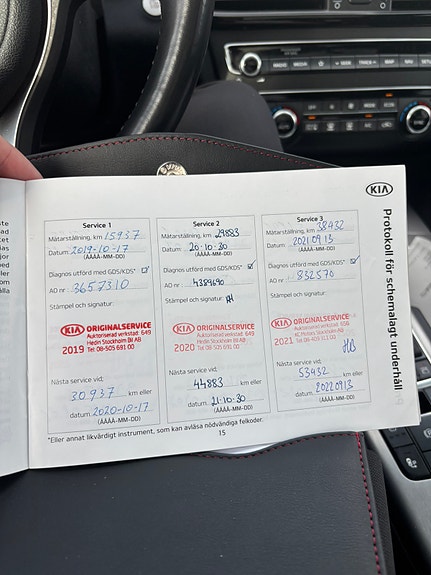 KIA
Protokoll för schemalagt underhåll
Service 1
Mätarställning, km 15937
Datum: 2019-10-17
(ÅÅÅÅ-MM-DD)
Diagnos utförd med GDS/KDS*
AO nr: 3657310
Stämpel och signatur:
KIA ORIGINALSERVICE
Auktoriserad verkstad 649
Hedin Stockholm Bil AB
2019 Tel: 08-505 691 00
Nästa service vid;
30937 km eller
datum. 2020-10-17
(ÅÅÅÅ-MM-DD)
Service 2
Mätarställning, km 29883
Datum: 20-10-30
(ÅÅÅÅ-MM-DD)
Diagnos utförd med GDS/KDS*
AO nr: 4389690
Stämpel och signatur:
KIA ORIGINALSERVICE
Auktoriserad verkstad 649
Hedin Stockholm Bil AB
2020 Tel: 08-505 691 00
Nästa service vid;
44883 km eller
datum. 21-10-30
(ÅÅÅÅ-MM-DD)
Service 3
Mätarställning, km 38432
Datum: 20210913
(ÅÅÅÅ-MM-DD)
Diagnos utförd med GDS/KDS*
AO nr: 832570
Stämpel och signatur:
KIA ORIGINALSERVICE
Auktoriserad verkstad 658
2021
HB
Nästa service vid;
53432 km eller
datum. 20220913
(ÅÅÅÅ-MM-DD)
*Eller annat likvärdigt instrument, som kan avläsa nödvändiga felkoder.
15